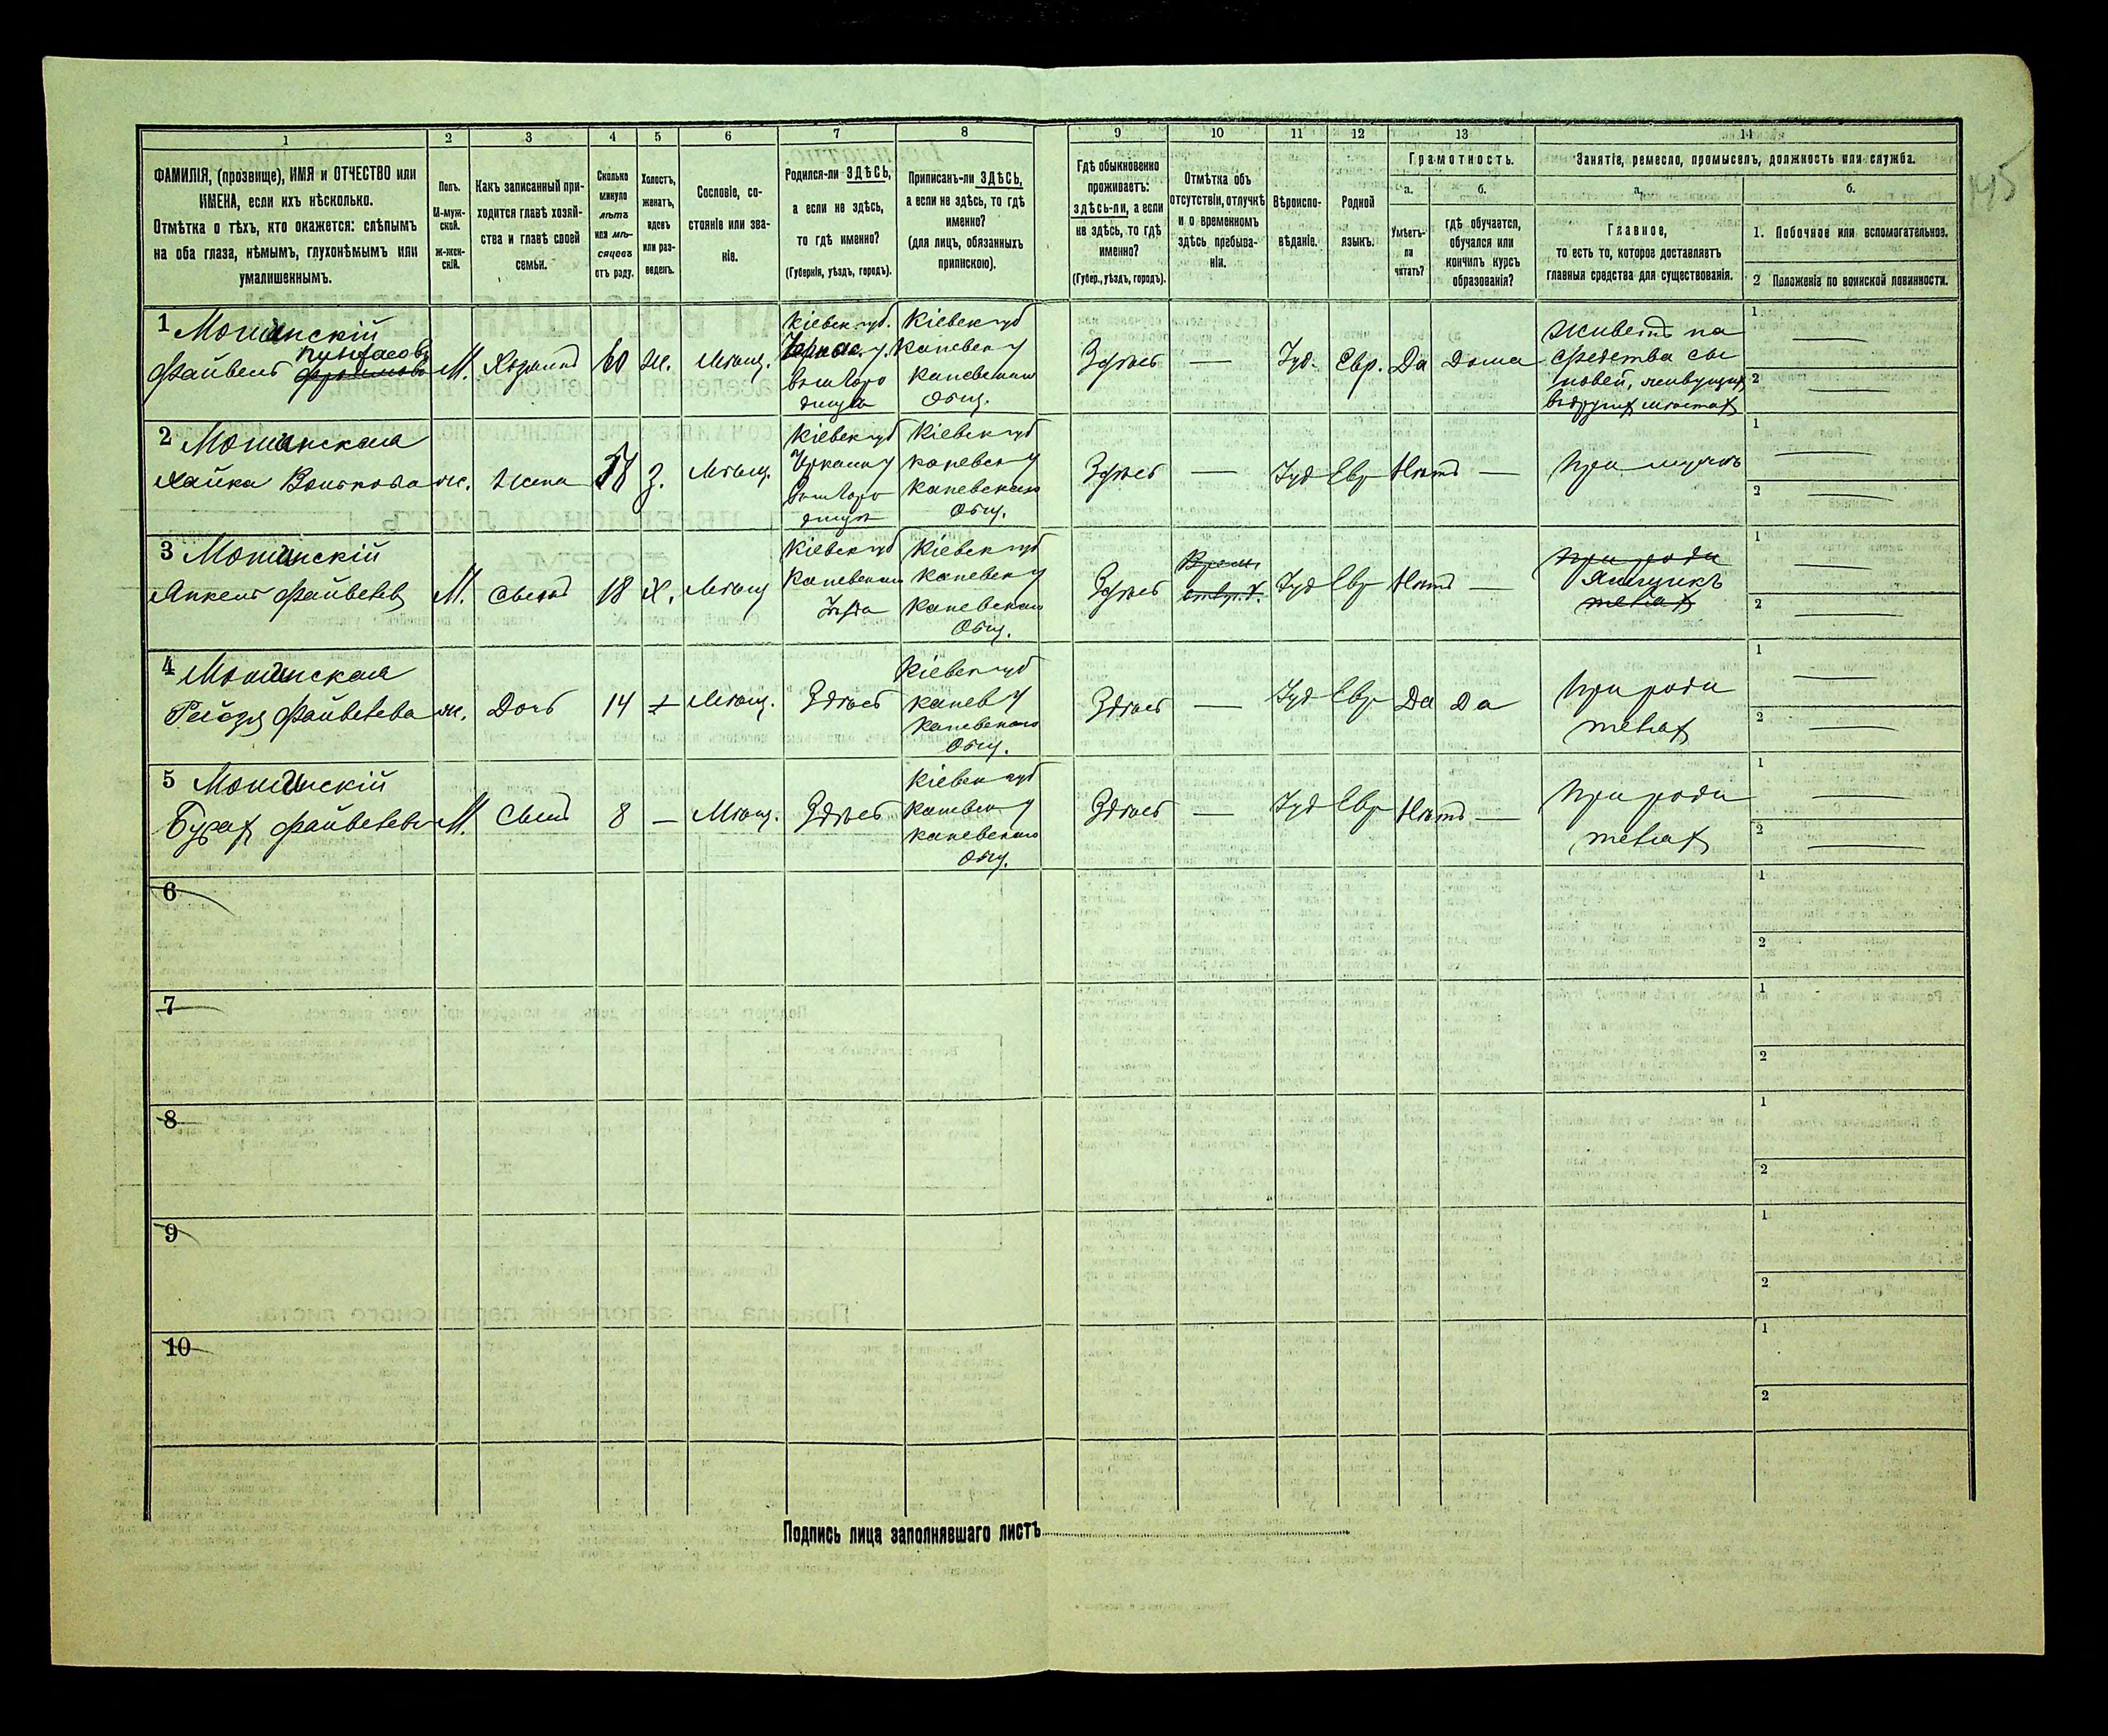 145
1 2 3 4 5 6 7 8 9 10 11 12 13 14
ФАМИЛІЯ, (прозвище), ИМЯ и ОТЧЕСТВО или
ИМЕНА, если ихъ нѣсколько.
Отмѣтка о тѣхъ, кто окажется: слѣпымъ
на оба глаза, нѣмымъ, глухонѣмымъ или
умалишеннымъ.
Полъ.
М-муж-
ской.
ж-жен-
скій.
Какъ записанный при-
ходится главѣ хозяй-
ства и главѣ своей
семьи.
Сколько
минуло
лѣтъ
или мѣ-
сяцевъ
отъ роду.
Холостъ,
женатъ,
вдовъ
или раз-
веденъ.
Сословіе, со-
стояніе или зва-
ніе.
Родился-ли ЗДѢСЬ,
а если не здѣсь,
то гдѣ именно?
(Губернія, уѣздъ, городъ).
Приписанъ-ли ЗДѢСЬ,
а если не здѣсь, то гдѣ
именно?
(для лицъ, обязанныхъ
припискою).
Гдѣ обыкновенно
проживаетъ:
здѣсь-ли, а если
не здѣсь, то гдѣ
именно?
(Губер., уѣздъ, городъ).
Отмѣтка объ
отсутствіи, отлучкѣ
и о временномъ
здѣсь пребыва-
ніи.
Вѣроиспо-
вѣданіе.
Родной
языкъ.
Грамотность.
а.
Умѣетъ-
ли
читать?
б.
гдѣ обучается,
обучался или
кончилъ курсъ
образованія?
Занятіе, ремесло, промыселъ, должность или служба.
а.
Главное,
то есть то, которое доставляетъ
главныя средства для существованія.
б.
1. Побочное или вспомогательное.
2 Положеніе по воинской повинности.
1 Мошинскій
Файвель
М.
Хозяинъ
60
Ж.
Мѣщ.
Кіевск губ.
Кіевск губ
Каневск у
Каневскаго
Общ.
Здѣсь
—
Іуд.
Евр.
Да
Дома
Живетъ на
средства сы
новей, живущих
въ других мѣстах
1
2
2 Мошинская
Хайка
ж.
Жена
З.
Мѣщ.
Кіевск губ
Кіевск губ
Каневск у
Каневскаго
Общ.
Здѣсь
—
Іуд
Евр
Нѣтъ
—
При мужѣ
1
2
3 Мошинскій
Янкель Файвелев
М.
Сынъ
18
Х.
Мѣщ
Кіевск губ
Каневскаго
Кіевск губ
Каневск у
Каневскаго
Общ.
Здѣсь
Іуд
Евр
Нѣтъ
—
При роди
Ямщикъ
телях
1
2
4 Мошинская
Файвелева
ж.
Дочь
14
Мѣщ.
Здѣсь
Кіевск губ
Канев у
Каневскаго
Общ.
Здѣсь
—
Іуд
Евр
Да
Да
При роди
телях
1
2
5 Мошинскій
Файвелев
М.
Сынъ
8
—
Мѣщ.
Здѣсь
Кіевск губ
Каневск у
Каневскаго
Общ.
Здѣсь
—
Іуд
Евр
Нѣтъ
—
При роди
телях
1
2
6
1
2
7
1
2
8
1
2
9
1
2
10
1
2
Подпись лица заполнявшаго листъ